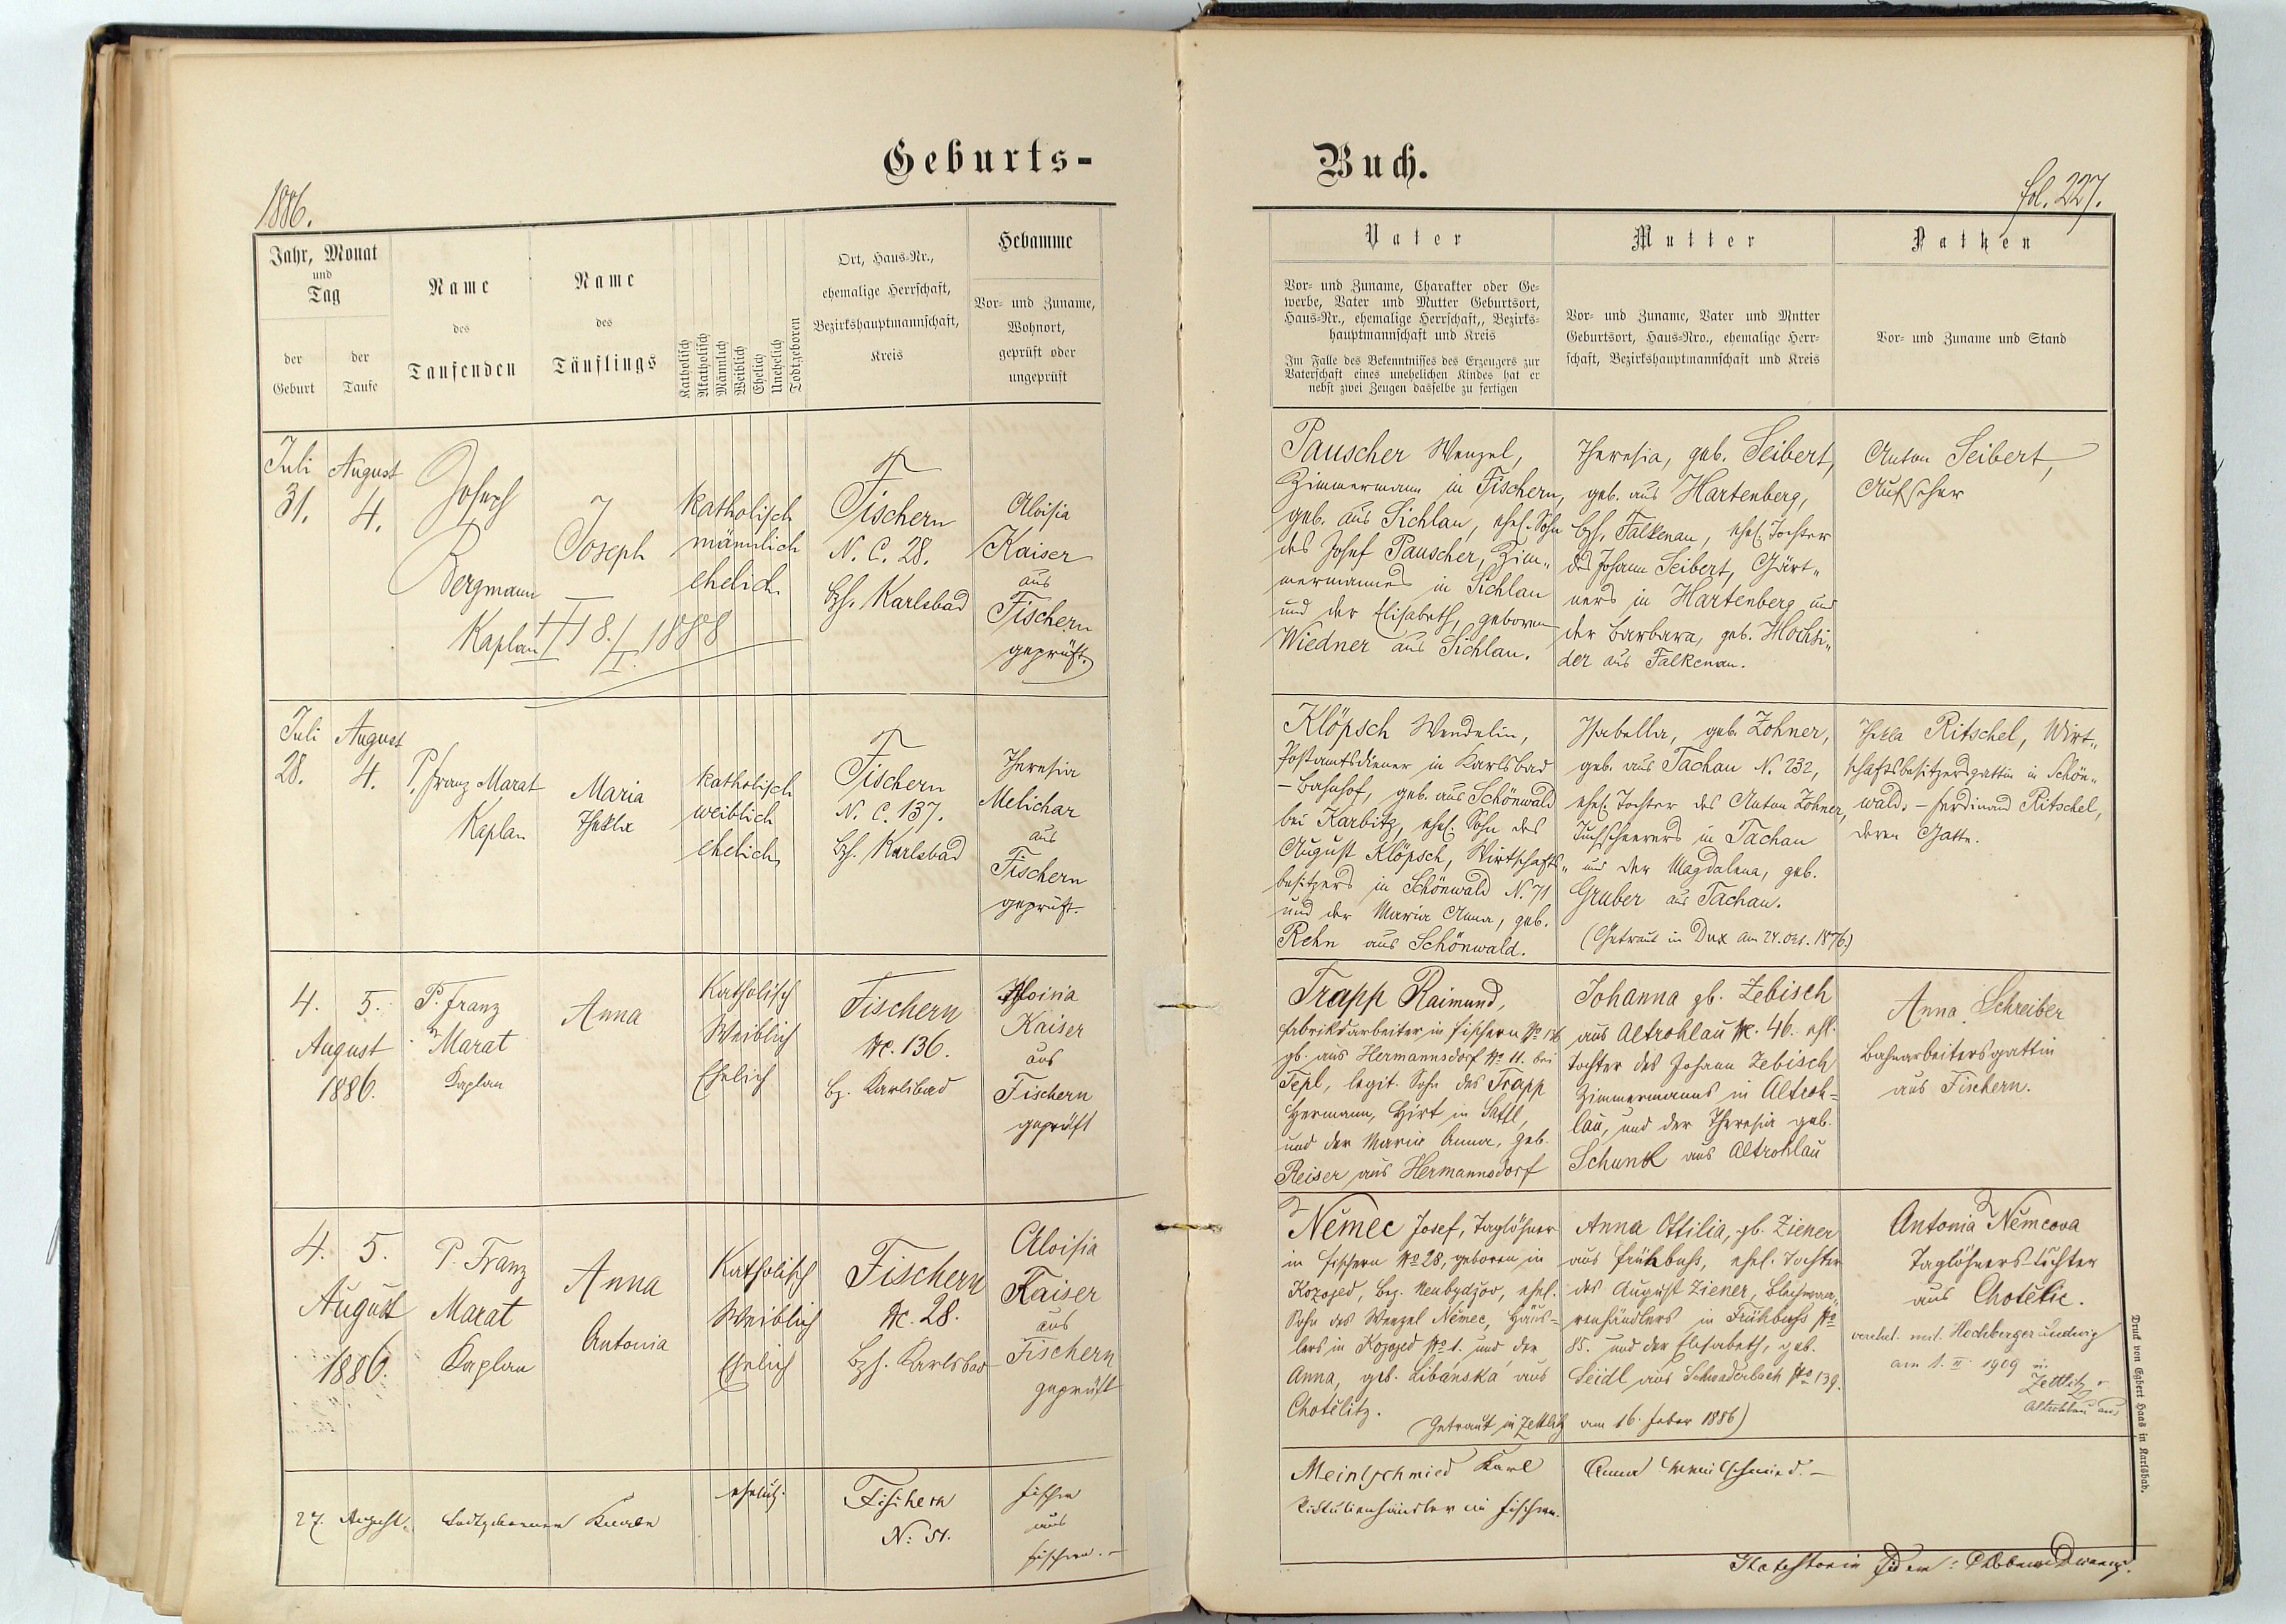 Geburts-
1886.
Jahr, Monat
und
Tag
der
Geburt
der
Taufe
Name
des
Taufenden
Name
des
Täuflings
Katholisch
Akatholisch
Männlich
Weiblich
Ehelich
Unehelich
Todtgeboren
Ort, Haus-Nr.,
ehemalige Herrschaft,
Bezirkshauptmannschaft,
Kreis
Hebamme
Vor- und Zuname,
Wohnort,
geprüft oder
ungeprüft
Juli
31.
August
4.
Joseph
Bergmann
Kaplan
Joseph
18./I. 1888
katholisch
männlich
ehelich
Fischern
N. C. 28.
Bzh. Karlsbad
Aloisia
Kaiser
aus
Fischern
geprüft.
Juli
28.
August
4.
P. Franz Marat
Kaplan
Maria
Thekla
katholisch
weiblich
ehelich
Fischern
N. C. 137.
Bzh. Karlsbad
Theresia
Melichar
aus
Fischern
geprüft.
4. 5.
August
1886.
P. Franz
Marat
Kaplan
Anna
Katholisch
Weiblich
Ehelich
Fischern
Nc. 136.
Bz. Karlsbad
Aloisia
Kaiser
aus
Fischern
geprüft
4. 5.
August
1886.
P. Franz
Marat
Kaplan
Anna
Antonia
Katholisch
Weiblich
Ehelich
Fischern
Nc. 28.
Bzh. Karlsbad
Aloisia
Kaiser
aus
Fischern
geprüft
27. August.
todtgeborener Knabe
ehelich.
Fischern
N: 51.
aus
Fischern.
Buch.
fol. 227.
Vater
Vor- und Zuname, Charakter oder Ge-
werbe, Vater und Mutter Geburtsort,
Haus-Nr., ehemalige Herrschaft,, Bezirks-
hauptmannschaft und Kreis
Im Falle des Bekenntnisses des Erzeugers zur
Vaterschaft eines unehelichen Kindes hat er
nebst zwei Zeugen dasselbe zu fertigen
Mutter
Vor- und Zuname, Vater und Mutter
Geburtsort, Haus-Nro., ehemalige Herr-
schaft, Bezirkshauptmannschaft und Kreis
Pathen
Vor- und Zuname und Stand
Pauscher Wenzel,
Zimmermann in Fischern,
geb. aus Sichlau, ehel. Sohn
des Josef Pauscher, Zim„
mermannes in Sichlau
und der Elisabeth, geboren
Wiedner aus Sichlau.
Theresia, geb. Seibert,
geb. aus Hartenberg,
Bzh. Falkenau, ehel. Tochter
des Johann Seibert, Gärt„
ners in Hartenberg und
der Barbara, geb. Hochsi„
der aus Falkenau.
Anton Seibert,
Aufseher
Klöpsch Wendelin,
Postamtsdiener in Karlsbad
– Bahnhof, geb. aus Schönwald
bei Karbitz, ehel. Sohn des
August Klöpsch, Wirtschafts„
besitzers in Schönwald N. 71
und der Maria Anna, geb.
Rehn aus Schönwald.
Isabella, geb. Zohner,
geb. aus Tachau N. 232,
ehel. Tochter des Anton Zohner,
Tuchscheerers in Tachau
und der Magdalena, geb.
Gruber aus Tachau.
(Getraut in Dux am 24. Okt. 1876.)
Thekla Ritschel, Wirt„
schaftsbesitzersgattin in Schön„
wald. – Ferdinand Ritschel,
deren Gatte.
Trapp Raimund,
Fabriksarbeiter in Fischern No 136
gb. aus Hermannsdorf No 11. bei
Tepl, legit. Sohn des Trapp
Hermann, Hirt in Sattl,
und der Maria Anna, geb.
Reiser aus Hermannsdorf
Johanna gb. Zebisch
aus Altrohlau Nc. 46. ehl.
Tochter des Johann Zebisch
Zimmermanns in Altroh=
lau, und der Theresia geb.
Schunk aus Altrohlau
Anna Schreiber
Bahnarbeitersgattin
aus Fischern.
Němec Josef, Taglöhner
in Fischern No 28, geboren in
Kozojed, Bez. Neubydžov, ehel.
Sohn des Wenzel Němec, Häus=
lers in Kozojed No 1. und der
Anna, geb. Libánská aus
Chotělitz.
Anna Ottilia, gb. Ziener
aus Frühbuss, ehel. Tochter
des August Ziener, Blechwaa„
renhändlers in Frühbuss No
85. und der Elisabeth, geb.
Seidl aus Schwaderbach No 139.
(Getraut in Zettlitz am 16. Feber 1886)
Antonia Němcova
Taglöhners-tochter
aus Chotělic.
verehel. mit Hochberger Ludwig
am 1. II. 1909 in
Zettlitz
Altrohlau
Meinlschmied Karl
Viktualienhändler in Fischern.
Anna Meinlschmied. –
Druck von Egbert Haas in Karlsbad.